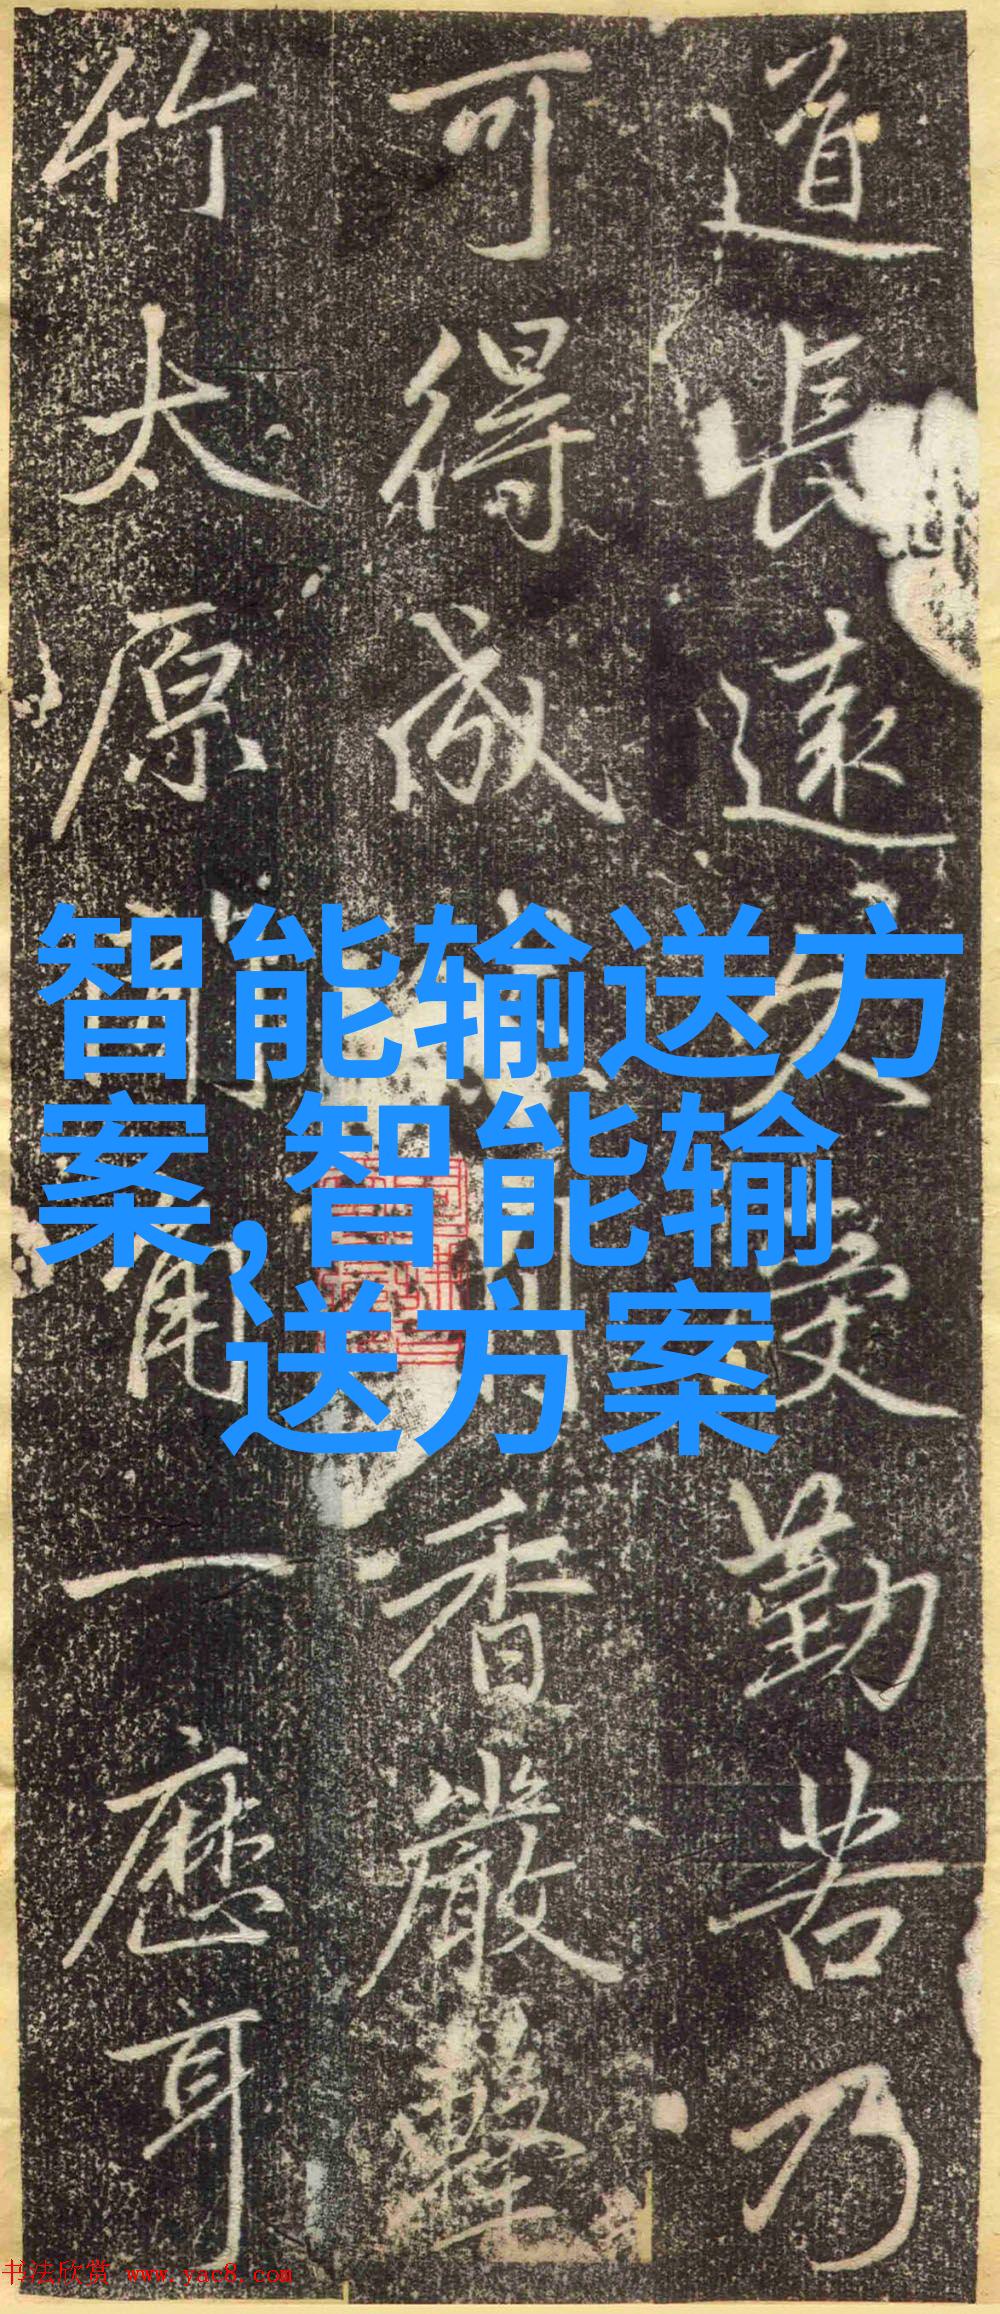 道長遠久受勤苦乃
可得成香嚴擊
竹太原角一應耳
智能输送方
案,智能输
送方案
书法欣赏 www.yac8.com